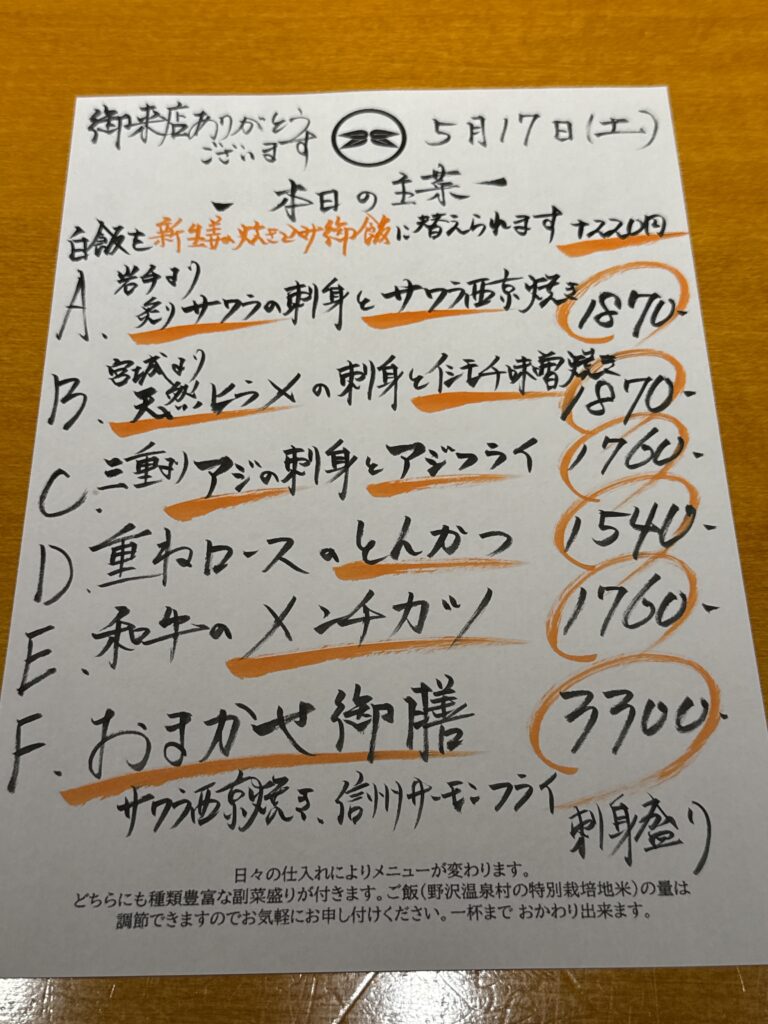 御来店ありがとう
ございます
5月17日(土)
ー 本日の主菜 ー
白飯を新生姜の炊き込み御飯に替えられます +220円
A. 岩手より
炙りサワラの刺身とサワラ西京焼き 1870-
B. 宮城より
天然ヒラメの刺身とイシモチ味噌焼き 1870-
C. 三重より アジの刺身とアジフライ 1760-
D. 重ねロースのとんかつ 1540-
E. 和牛のメンチカツ 1760-
F. おまかせ御膳 3300-
サワラ西京焼き、信州サーモンフライ
刺身盛り
日々の仕入れによりメニューが変わります。
どちらにも種類豊富な副菜盛りが付きます。ご飯(野沢温泉村の特別栽培地米)の量は
調節できますのでお気軽にお申し付けください。一杯まで おかわり出来ます。